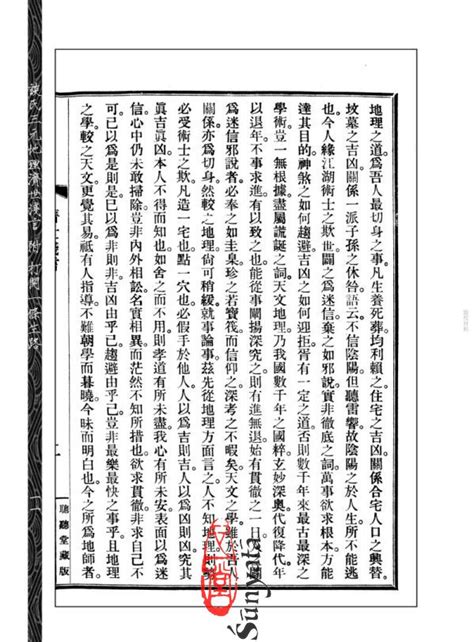 地理之道為吾人最切身之事凡生養死葬均利賴之住宅之吉凶關係合宅人口之興替。
坟墓之吉凶關係一派子孫之休咎語云不信陰陽但聽雷響故陰陽之於人生所不能逃
也今人緣江湖術士之欺世闢之為迷信棄之如邪說實非徹底之詞萬事欲求根本方能
達其目的神煞之如何趨避吉凶之如何迎拒胥有一定之道否則數千年來最古最深之
學術豈一無根據盡屬謊誕之詞天文地理乃我國數千年之國粹玄妙深奧代復降代年
以退年不事求進有以致之也能從事闡揚深究之則有進無退始有貫徹之一日反
為迷信邪說者必奉之如圭臬珍之若寶筏而信仰之深考之不暇矣天文之學雖於吾人
關係亦為切身然較之地理尚可稍緩就事論事茲先從地理方面言之人不知地理則
必受術士之欺凡造一宅也點一穴也必假手於他人人以為吉則吉人以為凶則凶究其
眞吉眞凶本人不得而知也如舍之而不用則孝道有所未盡我心有所未安表面以為迷
信心中仍未敢掃除豈非內外相訟名實相異而茫然不知所措也欲求貫徹非求自己不
可已以為是則是已以為非則非吉凶由乎已趨避由乎已豈非最樂最快之事乎且地理
之學較之天文更覺其易祗有人指導不難朝學而暮曉今昧而明白也今之所為地師者。
一
聽聽堂藏版
談氏三元地理濟世淺言 附 打開一條生路
一一
Śūnyatā